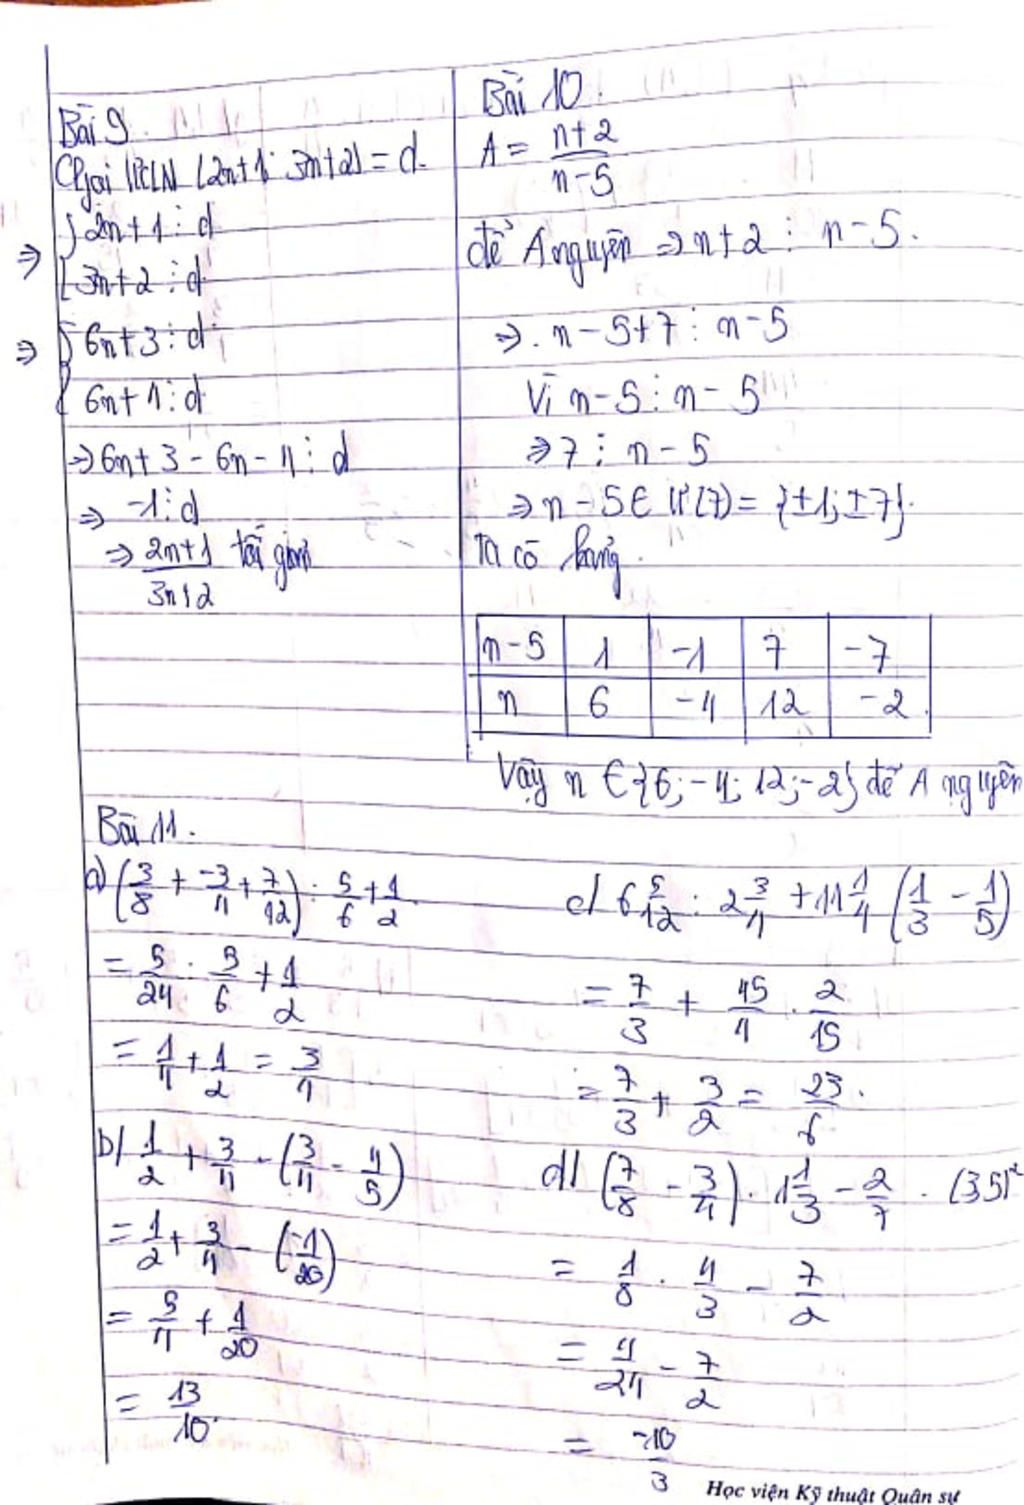 Bài 9.
Gọi ƯCLN (2n+1; 3n+2) = d.
⇒ { 2n+1 ⋮ d
3n+2 ⋮ d
⇒ { 6n+3 ⋮ d
6n+4 ⋮ d
⇒ 6n+3 - 6n - 4 ⋮ d
⇒ -1 ⋮ d
⇒ (2n+1)/(3n+2) tối giản
Bài 10.
A = (n+2)/(n-5)
để A nguyên ⇒ n+2 ⋮ n-5.
⇒. n-5+7 ⋮ n-5
Vì n-5 ⋮ n-5
⇒ 7 ⋮ n-5
⇒ n-5 ∈ Ư(7) = {±1; ±7}.
Ta có bảng.
n-5 | 1 | -1 | 7 | -7
n | 6 | -4 | 12 | -2
Vậy n ∈ {6; -4; 12; -2} để A nguyên
Bài 11.
a) (3/8 + -3/4 + 7/12) : 5/6 + 1/2
= 5/24 : 5/6 + 1/2
= 1/4 + 1/2 = 3/4
b) 1/2 + 3/4 - (3/4 - 4/5)
= 1/2 + 3/4 - (-1/20)
= 5/4 + 1/20
= 13/10.
c) 6 5/12 : 2 3/4 + 11 1/4 (1/3 - 1/5)
= 7/3 + 45/4 . 2/15
= 7/3 + 3/2 = 23/6.
d) (7/8 - 3/4) . 1 1/3 - 2/7 . (3,5)²
= 1/8 . 4/3 - 7/2
= 4/24 - 7/2
= -10/3
Học viện Kỹ thuật Quân sự